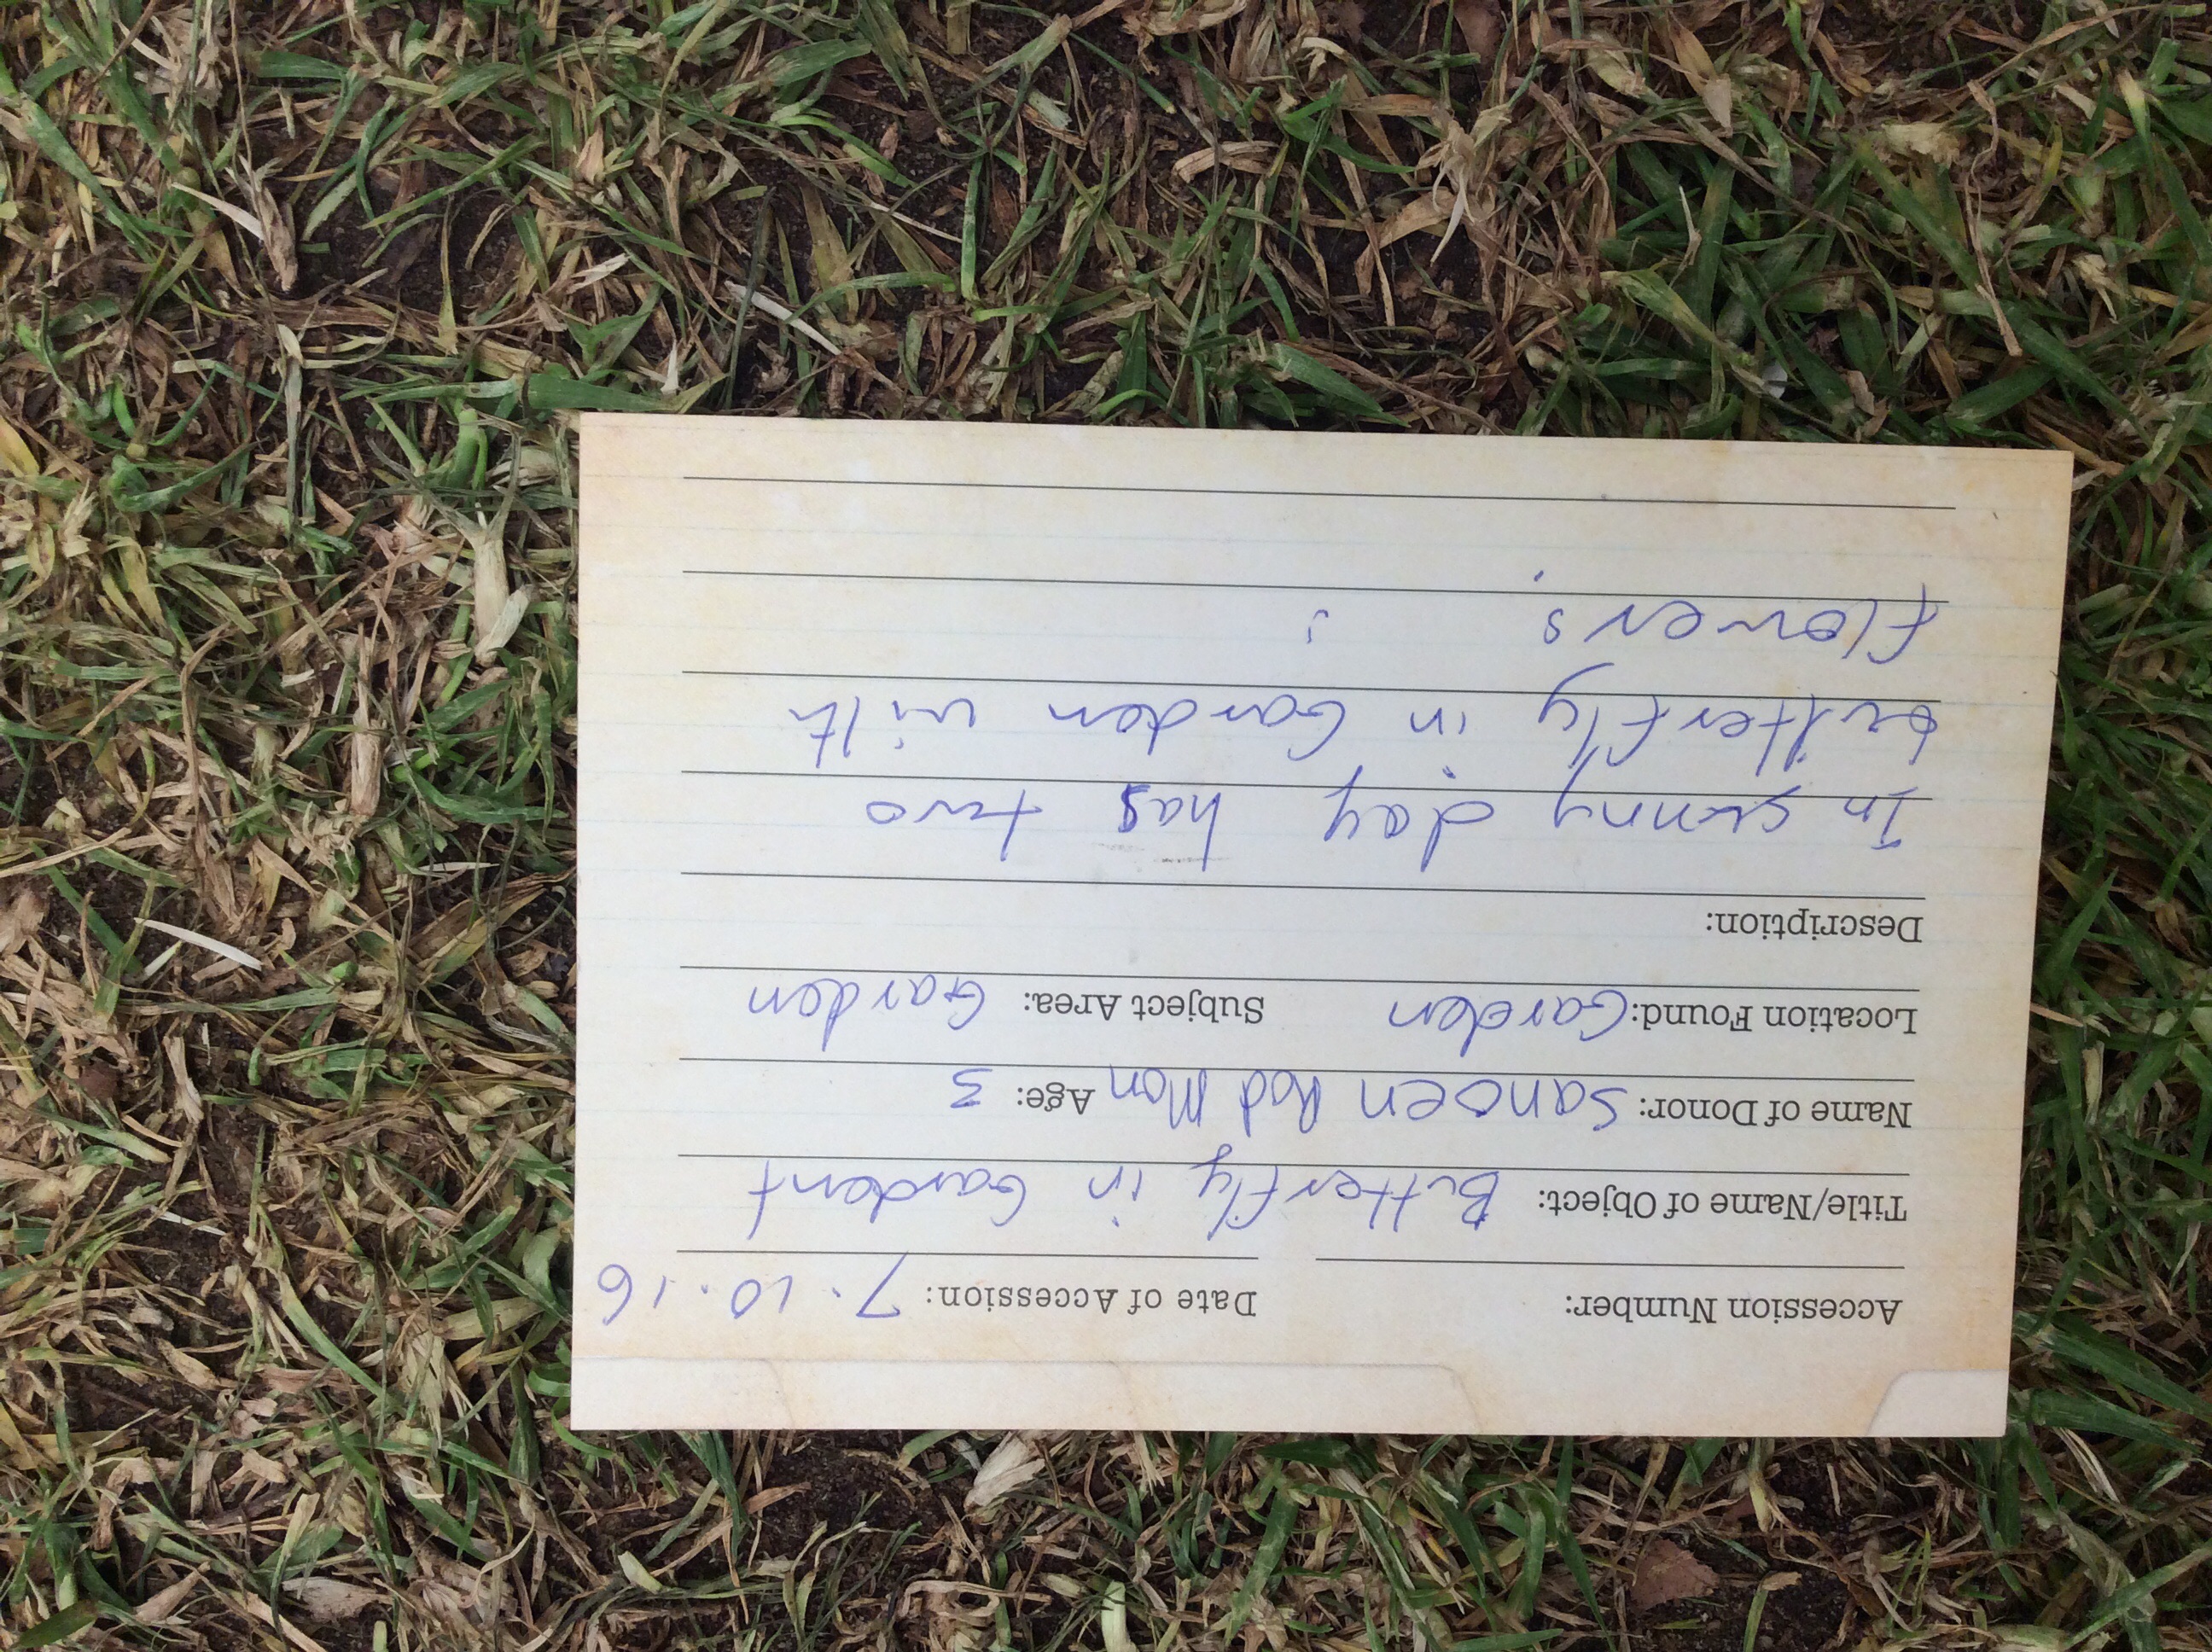 Accession Number: Date of Accession: 7.10.16
Title/Name of Object: Butterfly in Gardent
Name of Donor: Sanoen And Mom Age: 3
Location Found: Garden Subject Area: Garden
Description:
In sunny day has two
butterfly in Garden with
flowers